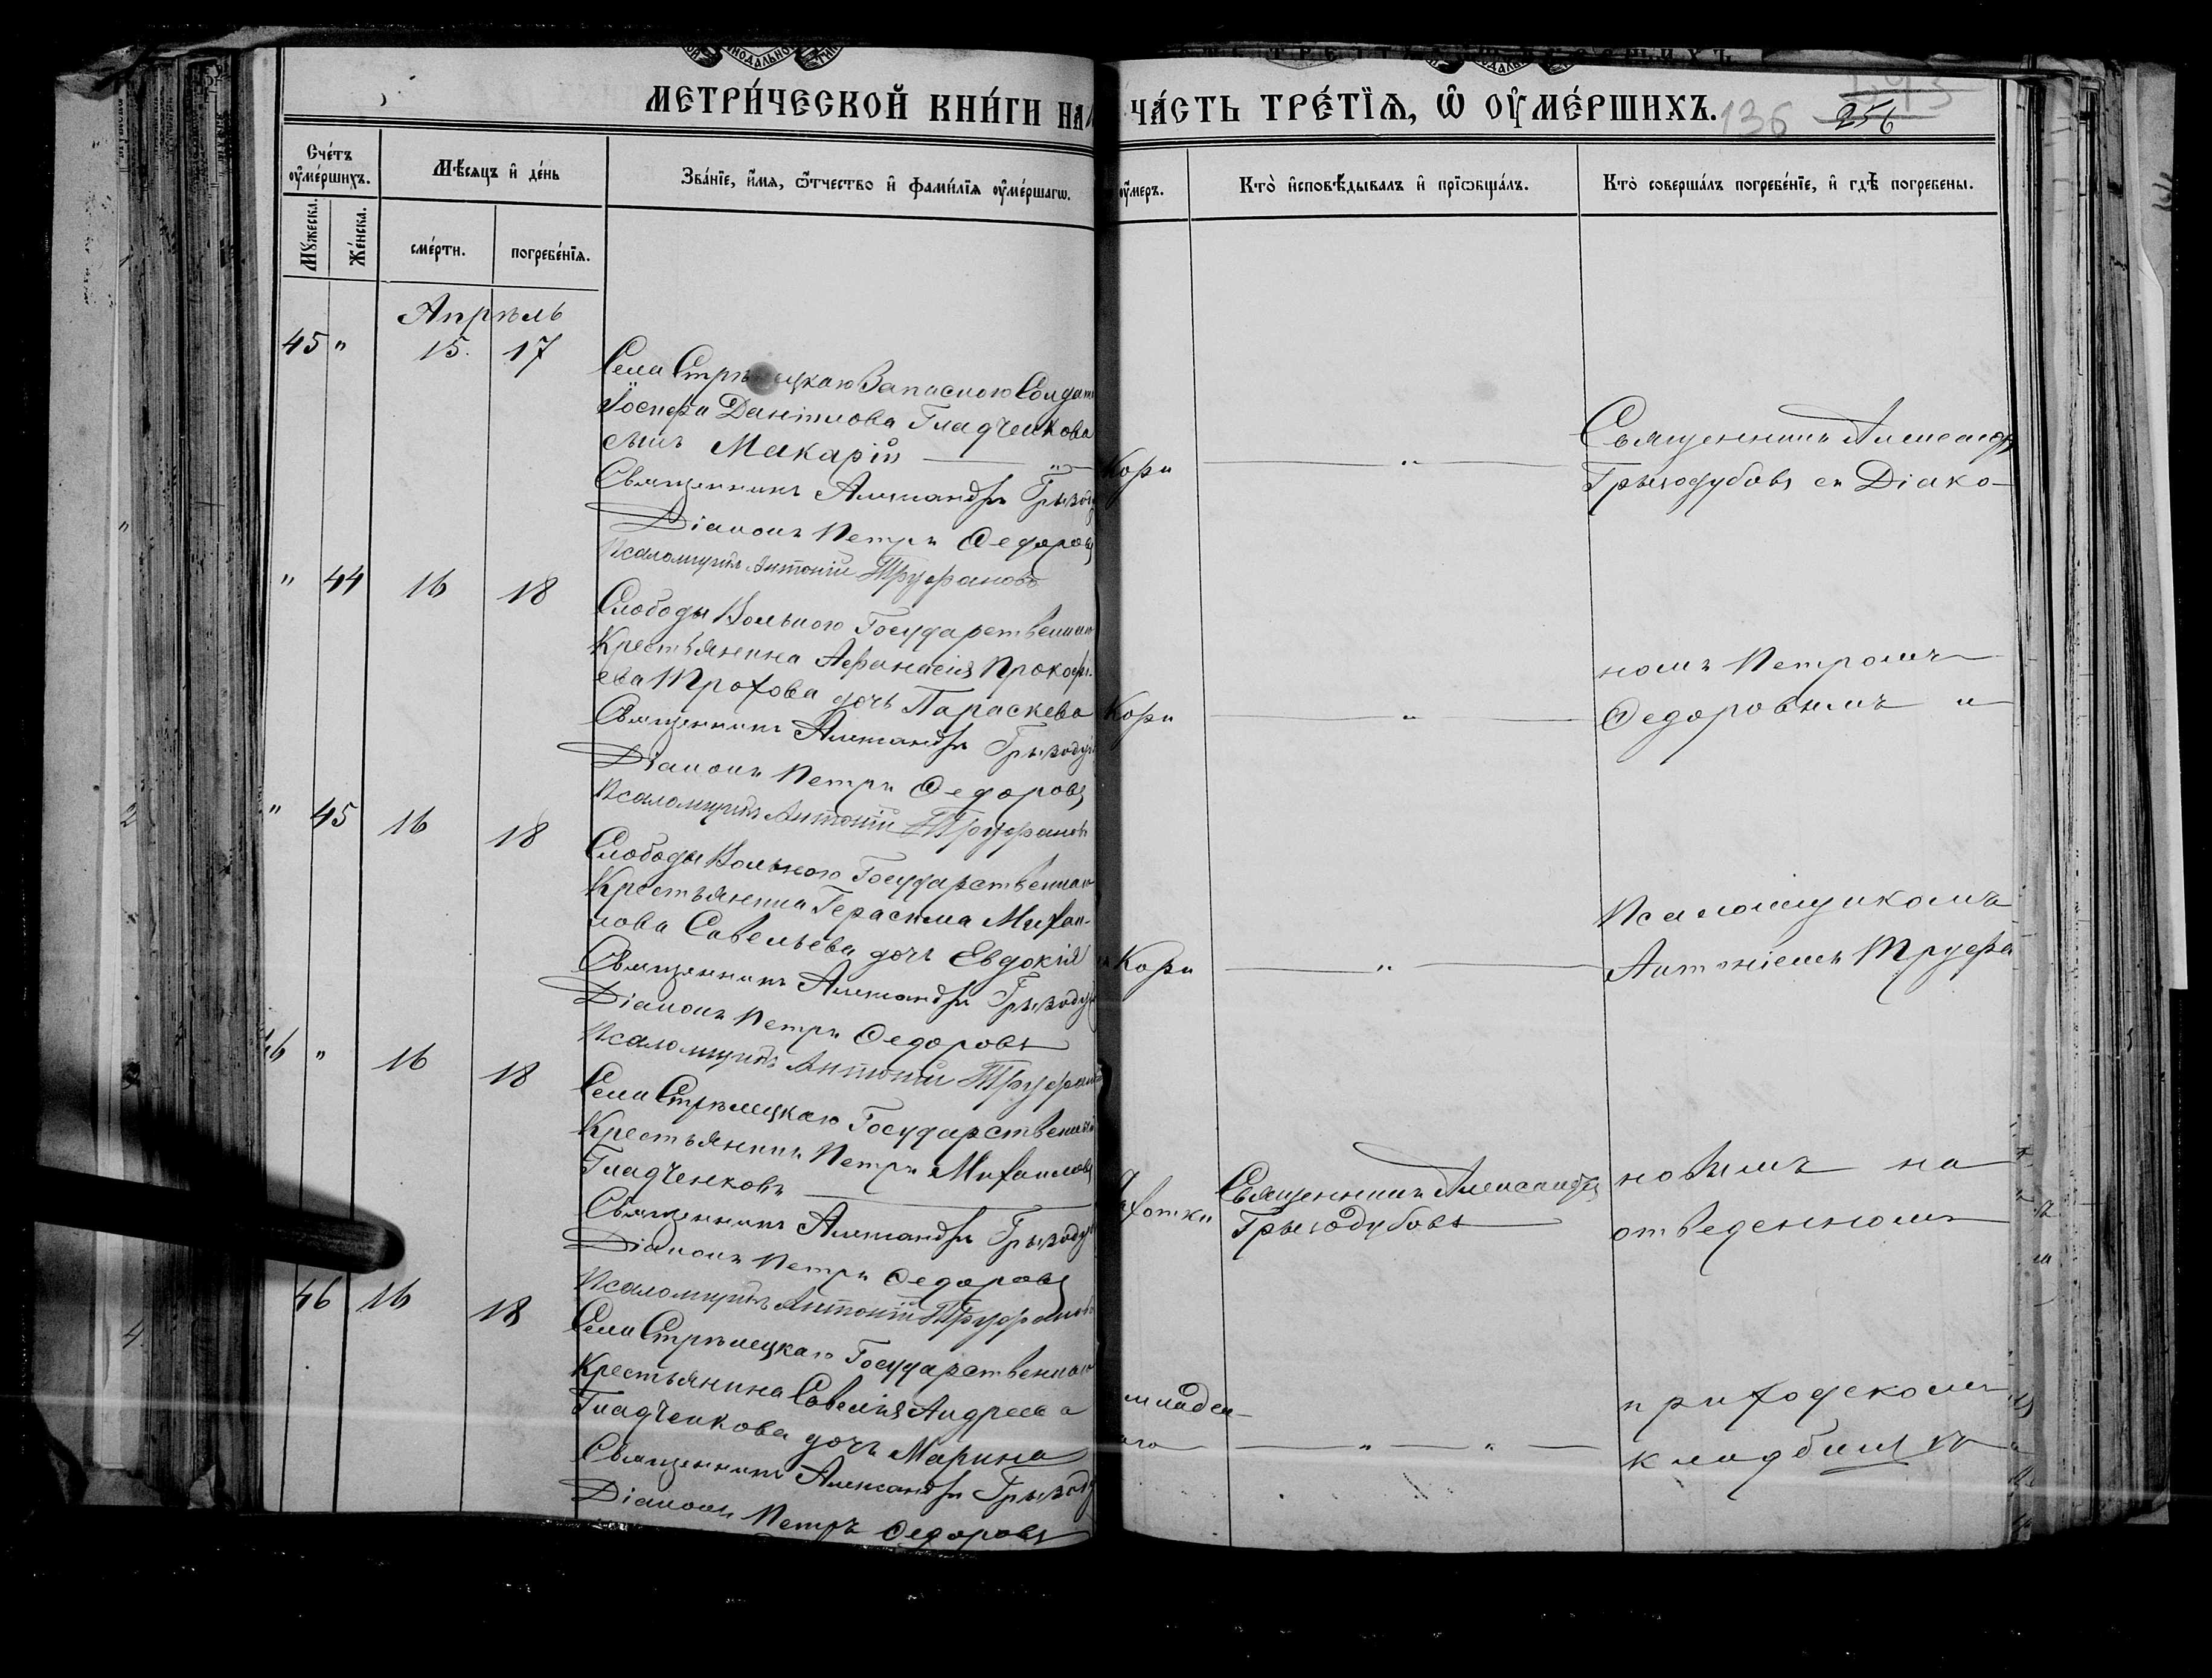 МЕТРИ́ЧЕСКОЙ КНИ́ГИ НА
ЧА́СТЬ ТРЕ́ТЇѦ, Ѡ҆ ОУ҆МЕ́РШИХЪ.
136 256
Сче́тъ оу҆ме́ршихъ.
Мѣ́сѧцъ и҆ де́нь
Зва́нїе, и҆́мѧ, ѻ҆́тчество и҆ фами́лїѧ оу҆ме́ршагѡ.
оу҆́меръ.
Кто̀ и҆сповѣ́дывалъ и҆ прїѡбща́лъ.
Кто̀ соверша́лъ погребе́нїе, и҆ гдѣ̀ погребены.
Мꙋ́жеска.
Же́нска.
сме́рти.
погребе́нїѧ.
Апрѣль
45 " 15. 17
Села Стрѣлецкаго Запаснаго Солдат
Іосифа Даніилова Гладченкова
сынъ Макарій — " —
Священникъ Александръ Грызоду
Діаконъ Петръ Федоровъ
Псаломщикъ Антоній Труфановъ
Кори — " —
Священникъ Александръ
Грызодубовъ съ Діако-
" 44 16 18
Слободы Вольного Государственнаго
Крестьянина Афанасія Прокофь-
ева Трохова дочь Параскева
Священникъ Александръ Грызоду
Діаконъ Петръ Федоровъ
Псаломщикъ Антоній Труфановъ
Кори — " —
номъ Петромъ
Федоровымъ и
" 45 16 18
Слободы Вольного Государственнаго
Крестьянина Герасима Михаи-
лова Савельева дочь Евдокія
Священникъ Александръ Грызоду
Діаконъ Петръ Федоровъ
Псаломщикъ Антоній Труфановъ
Кори — " —
Псаломщикомъ
Антоніемъ Труфа
46 " 16 18
Села Стрѣлецкаго Государственный
Крестьянинъ Петръ Михаиловъ
Гладченковъ —
Священникъ Александръ Грызоду
Діаконъ Петръ Федоровъ
Псаломщикъ Антоній Труфановъ
ахотки
Священникъ Александръ
Грызодубовъ —
новымъ на
отведенномъ
46 16 18
Села Стрѣлецкаго Государственнаго
Крестьянина Савелія Андреева
Гладченкова дочь Марина
Священникъ Александръ Грызоду
Діаконъ Петръ Федоровъ
младен-
аго — " — " —
приходскомъ
кладбищѣ